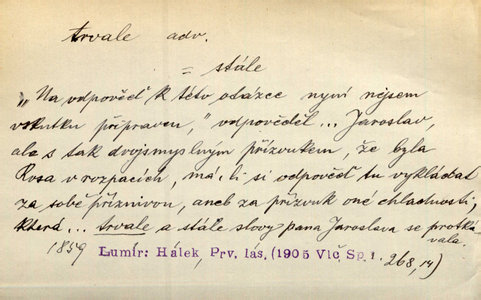 trvale adv.
= stále
„Na odpověď k této otázce nyní nejsem
vskutku připraven,“ odpověděl... Jaroslav
ale s tak dvojsmyslným přízvukem, že byla
Rosa v rozpacích, má-li si odpověď tu vykládat
za sobě příznivou, aneb za přízvuk oné chladnosti,
která... trvale a stále slovy pana Jaroslava se protká-
vala.
1859 Lumír: Hálek, Prv. lás. (1905 Vlč. Sp. 1. 268,14)